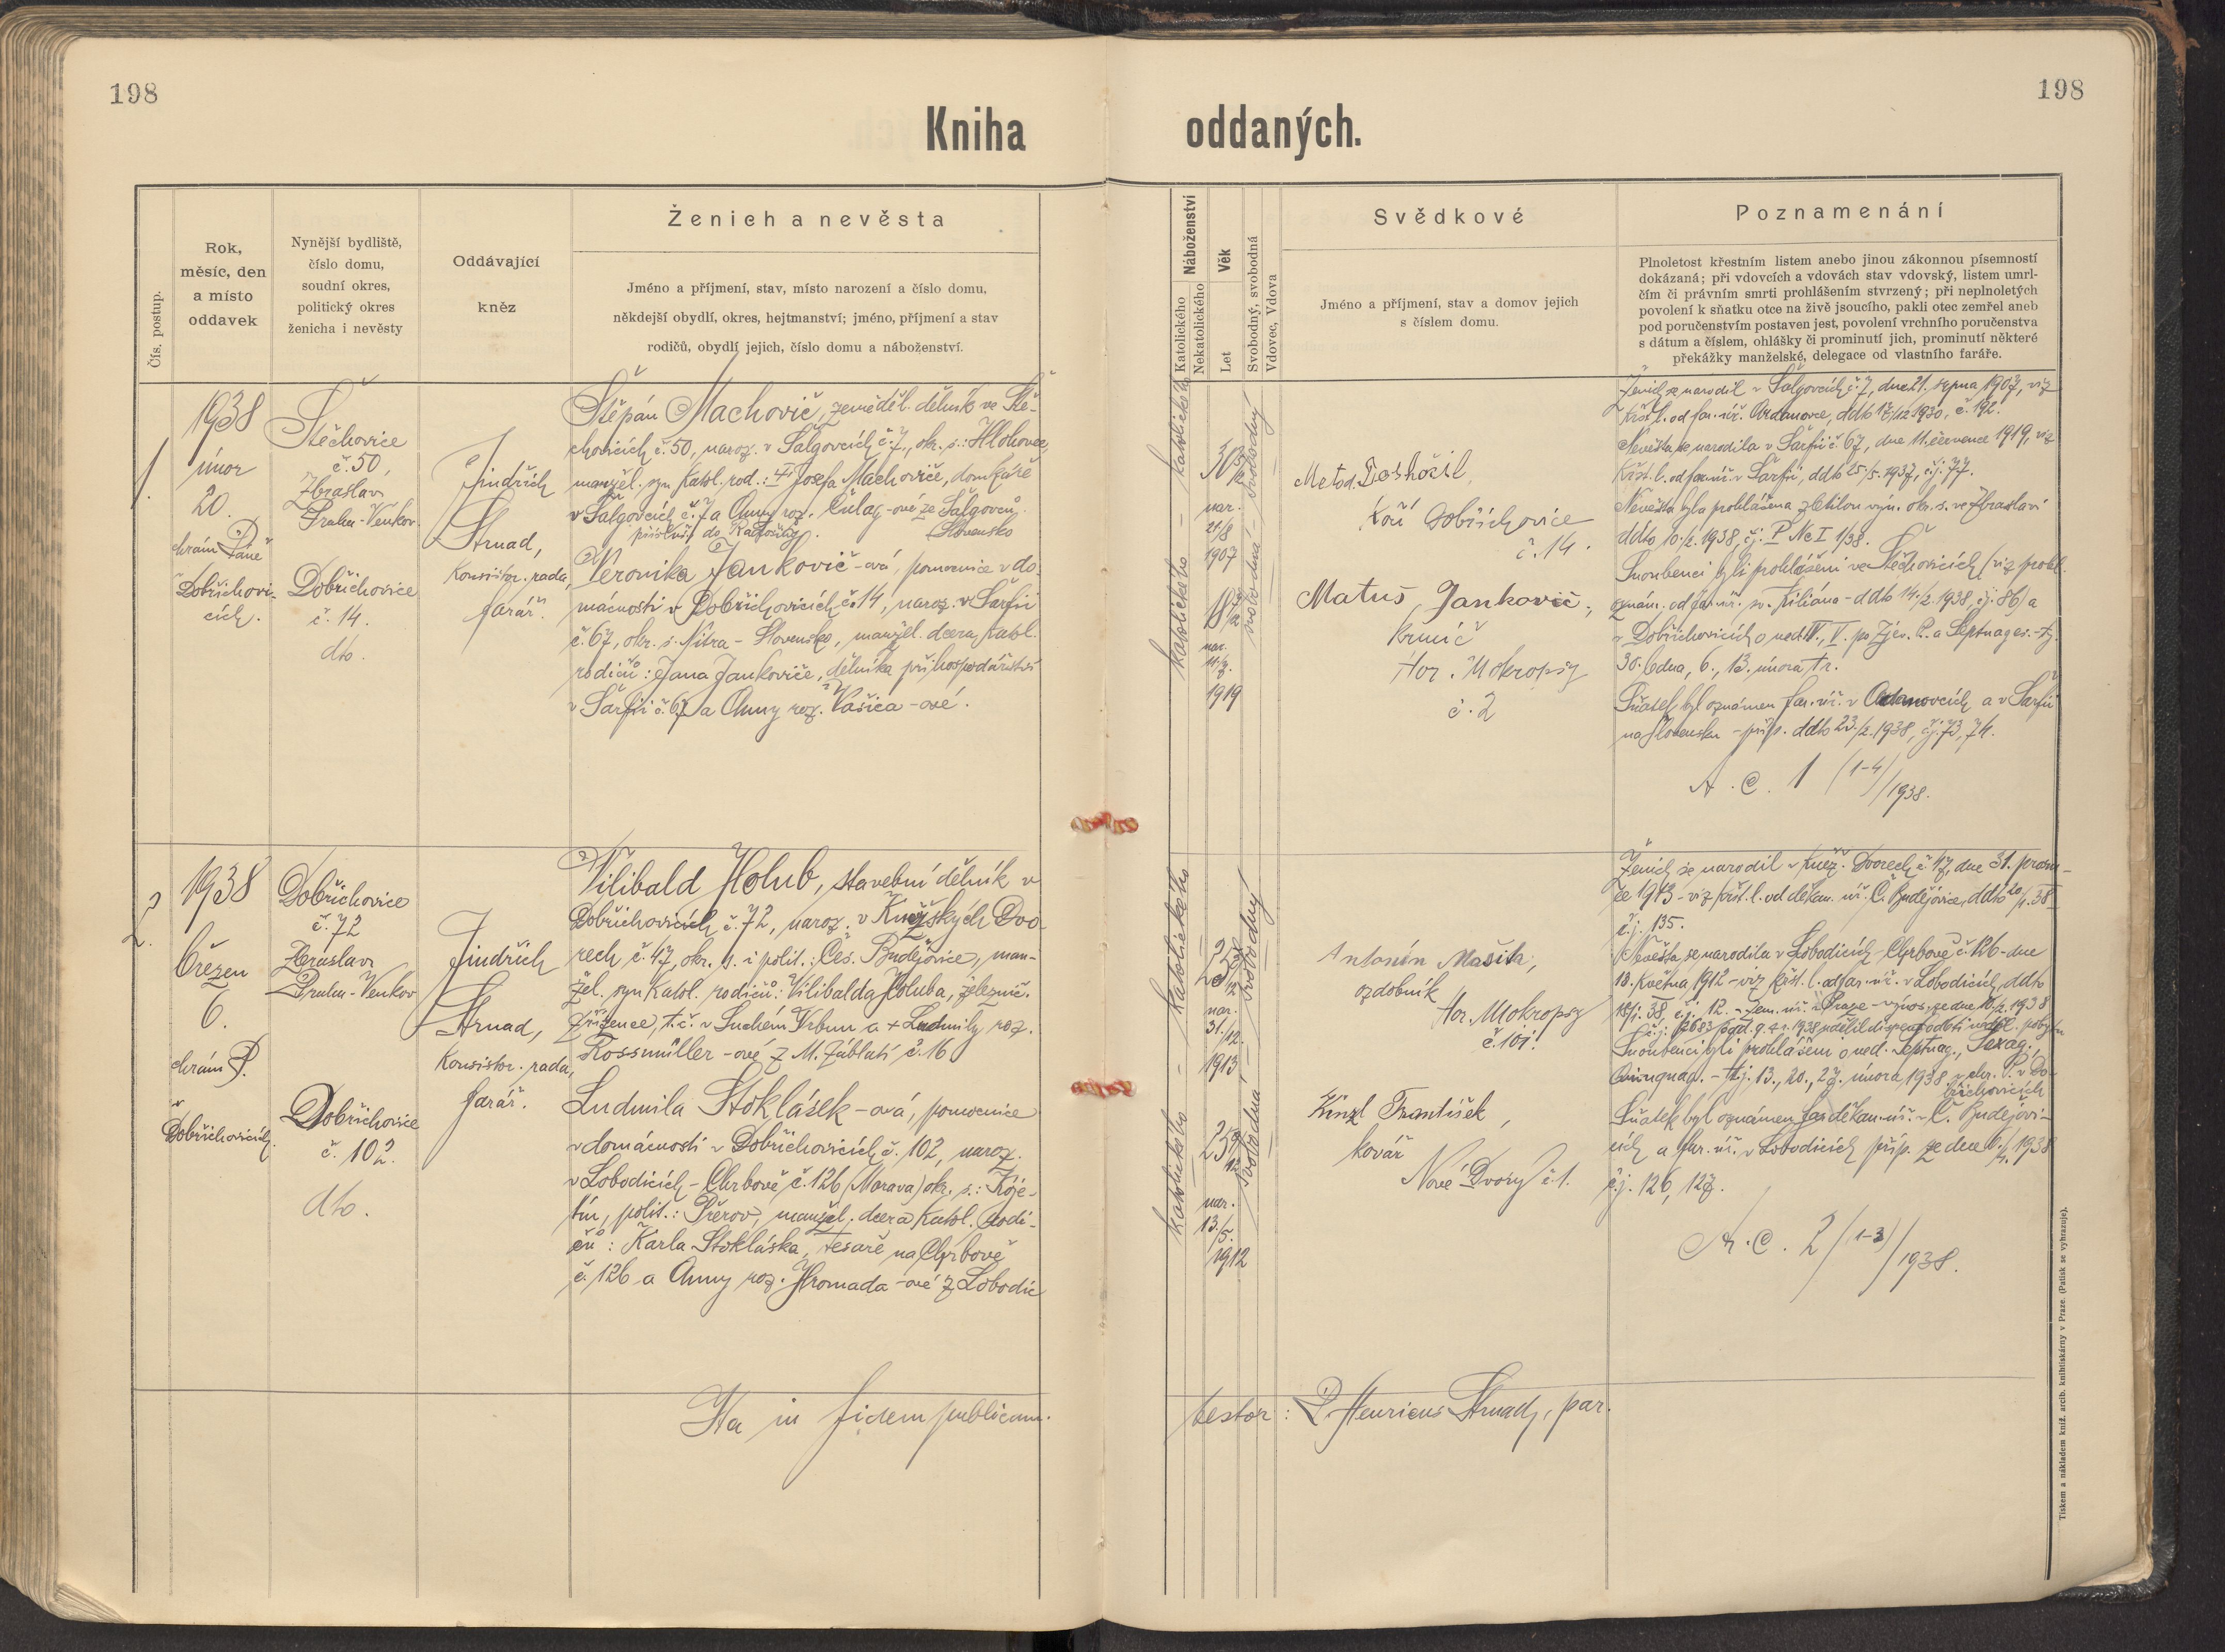 198
198
Kniha oddaných.
Čís. postup.
Rok,
měsíc, den
a místo
oddavek
Nynější bydliště,
číslo domu,
soudní okres,
politický okres
ženicha i nevěsty
Oddávající
kněz
Ženich a nevěsta
Jméno a příjmení, stav, místo narození a číslo domu,
někdejší obydlí, okres, hejtmanství; jméno, příjmení a stav
rodičů, obydlí jejich, číslo domu a náboženství.
Náboženství
Katolického
Nekatolického
Věk
Let
Svobodný, svobodná
Vdovec, Vdova
Svědkové
Jméno a příjmení, stav a domov jejich
s číslem domu.
Poznamenání
Plnoletost křestním listem anebo jinou zákonnou písemností
dokázaná; při vdovcích a vdovách stav vdovský, listem umrl-
čím či právním smrti prohlášením stvrzený; při neplnoletých
povolení k sňatku otce na živě jsoucího, pakli otec zemřel aneb
pod poručenstvím postaven jest, povolení vrchního poručenstva
s dátum a číslem, ohlášky či prominutí jich, prominutí některé
překážky manželské, delegace od vlastního faráře.
1.
1938
únor
20.
chrám Páně
v Dobřichovi-
cích.
Štěchovice
č. 50,
Zbraslav
Praha-Venkov
Dobřichovice
č. 14.
dto.
Jindřich
Strnad,
Konsistor. rada,
farář.
Štěpán Machovič, zeměděl. dělník ve Ště-
chovicích č. 50, naroz. v Šalgovcích č. 7, okr. s.: Hlohovec,
manžel. syn katol. rod.: † Josefa Machoviče, domkáře
v Šalgovcích č. 7 a Anny roz. Čulag-ové ze Šalgovců
přísluš. do Slovensko
Veronika Jankovič-ová, pomocnice v do-
mácnosti v Dobřichovicích č. 14, naroz. v Šarfii
č. 67, okr. s. Nitra - Slovensko, manžel. dcera katol.
rodičů: Jana Jankoviče, dělníka při hospodářství
v Šarfii č. 67 a Anny roz. Vašica-ové.
katolického - katolického
30
nar.
21/8
1907
18
nar.
11/7.
1919
svobodná - svobodný
Metod. Doshožil
Kočí Dobřichovice
č. 14.
Matuš Jankovič,
Krmič
Hor. Mokropsy
č. 2
Ženich se narodil v Šalgovcích č. 7, dne 21. srpna 1907, viz
křst. l. od far. úř. Ardanovce, ddto 17/12 1930, č. 192.
Nevěsta se narodila v Šarfii č. 67, dne 11. července 1919, viz
křst. l. od far. úř. v Šarfii, ddto 25/5. 1937, č. j. 77.
Nevěsta byla prohlášena zletilou výn. okr. s. ve Zbraslavi
ddto 10./2. 1938, č. j. P Nc I 1/38.
Snoubenci byli prohlášeni ve Štěchovicích (viz prohl.
oznám. od far. úř. sv. Kiliána - ddto 14./2. 1938, č. j. 86) a
v Dobřichovicích o ned. IV., V. po Zjev. P. a Septuages. - tj.
30. ledna, 6., 13. února t. r.
Sňatek byl oznámen far. úř. v Ardanovcích a v Šarfii
na Slovensku - příp. ddto 23./2. 1938, č. j. 73, 74.
A. C. 1 (1-4)/1938.
2.
1938
březen
6.
chrám P.
v
Dobřichovicích.
Dobřichovice
č. 72
Zbraslav
Praha-Venkov
Dobřichovice
č. 102.
dto.
Jindřich
Strnad,
Konsistor. rada,
farář.
Vilibald Holub, stavební dělník v
Dobřichovicích č. 72, naroz. v Kněžských Dvo-
rech č. 47, okr. s. i polit.: Čes. Budějovice, man-
žel. syn katol. rodičů: Vilibalda Holuba, železnič.
zřízence, t. č. v Suchém Vrbnu a † Ludmily roz.
Rossmüller-ové z M. Záblatí č. 16
Ludmila Stoklásek-ová, pomocnice
v domácnosti v Dobřichovicích č. 102, naroz.
v Lobodicích - Chrbově č. 126 (Morava) okr. s.: Koje-
tín, polit.: Přerov, manžel. dcera katol. rodi-
čů: Karla Stokláska, tesaře na Chrbově
č. 126 a Anny roz. Hromada-ové z Lobodic
katolického - katolického
nar.
31./12.
1913
25
nar.
13./5.
1912
svobodná - svobodný
Antonín Mašita,
ozdobník
Hor. Mokropsy
č. 101.
Kinzl František,
kovář
Nové Dvory č. 1.
Ženich se narodil v Kněž. Dvorech č. 47, dne 31. prosin-
ce 1913 - viz křst. l. od děkan. úř. Č. Budějovice, ddto 20/1. 38
č. j. 135.
Nevěsta se narodila v Lobodicích - Chrbově č. 126 - dne
13. května 1912 - viz křst. l. od far. úř. v Lobodicích, ddto
18/1. 38, č. j. 12. - Zem. úř. v Praze - výnos. ze dne 10./2. 1938
Snoubenci byli prohlášeni o ned. Septuag., Sexag.,
Quinquag. - tj. 13., 20., 27. února 1938 v chr. P. v Do-
břichovicích
Sňatek byl oznámen děkan. úř. v Č. Budějovi-
cích a far. úř. v Lobodicích příp. ze dne 1938
č. j. 126, 127.
A. C. 2/(1-3)/1938.
Ita in fidem publicam.
testor: P. Henricus Strnad, par.
Tiskem a nákladem kníž. arcib. knihtiskárny v Praze. (Patisk se vyhrazuje).